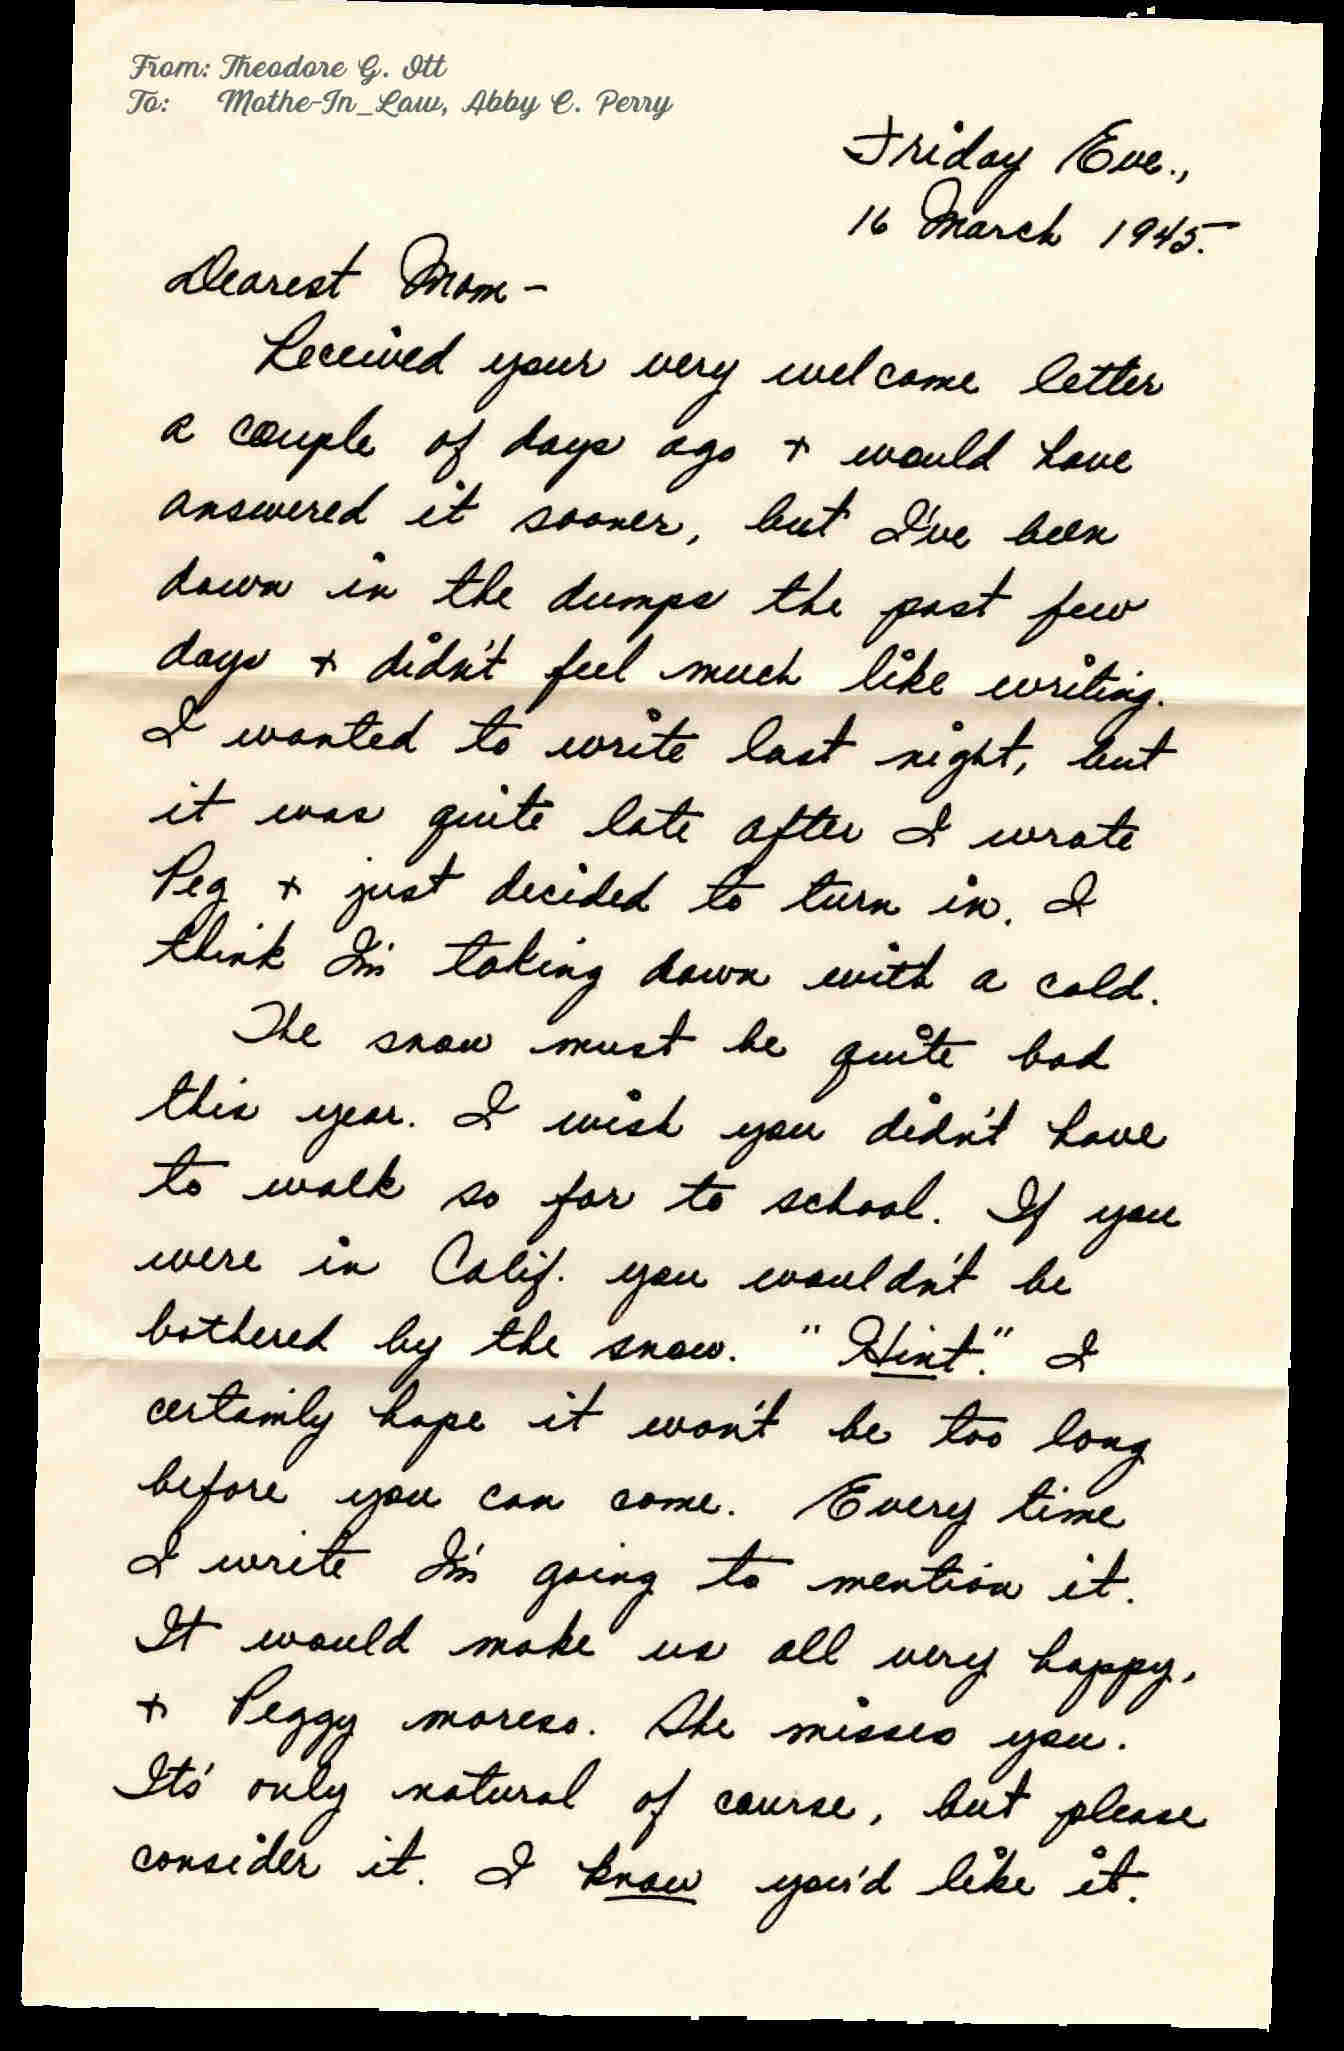 From: Theodore G. Ott
To: Mothe-In_Law, Abby C. Perry
Friday Eve.,
16 March 1945.
Dearest Mom -
Received your very welcome letter
a couple of days ago + would have
answered it sooner, but I've been
down in the dumps the past few
days + didn't feel much like writing.
I wanted to write last night, but
it was quite late after I wrote
Peg + just decided to turn in. I
think I'm taking down with a cold.
The snow must be quite bad
this year. I wish you didn't have
to walk so far to school. If you
were in Calif. you wouldn't be
bothered by the snow. "Hint". I
certainly hope it won't be too long
before you can come. Every time
I write I'm going to mention it.
It would make us all very happy,
+ Peggy moreso. She misses you.
Its' only natural of course, but please
consider it. I know you'd like it.